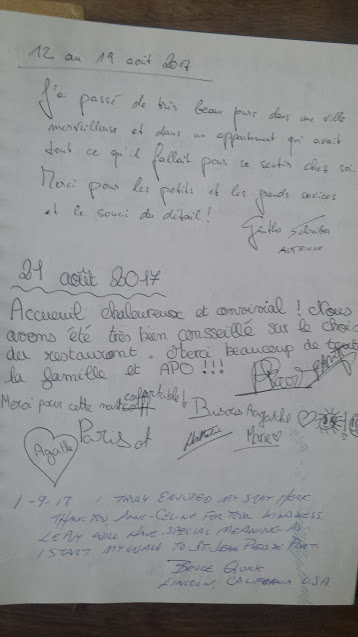 12 au 19 août 2017
J'ai passé de très beaux jours dans une ville
merveilleuse et dans un appartement qui avait
tout ce qu'il fallait pour se sentir chez soi.
Merci pour les petits et les grands services
et le souci du détail !
AUTRICHE
21 août 2017
Accueuil chaleureux et convivial ! Nous
avons été très bien consseillé sur le choix
du restaurant. Merci beaucoup de
la famille et APO !!!
Merci pour cette nuit confortable !
Bisous Agathe
Marie
Agathe
Parisot
1-9-17 I TRULY ENJOYED MY STAY HERE
THANK YOU, ANNE-CELINE FOR YOUR KINDNESS
LE PUY WILL HAVE SPECIAL MEANING AS
I START MY WALK TO ST JEAN PIED DE PORT.
BRUCE QUIRK
LINCOLN, CALIFORNIA USA